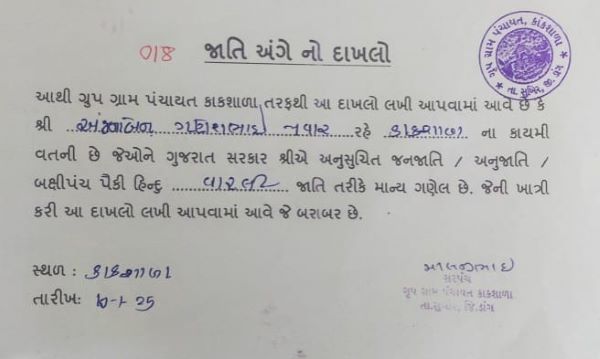 018 જાતિ અંગે નો દાખલો
ગૃપ ગ્રામ પંચાયત, કાકશાળા
તા. સુબિર, જી. ડાંગ
આથી ગ્રુપ ગ્રામ પંચાયત કાકશાળા તરફથી આ દાખલો લખી આપવામાં આવે છે કે
શ્રી અંજનાબેન ગણેશભાઈ પવાર રહે કાકશાળા ના કાયમી
વતની છે જેઓને ગુજરાત સરકાર શ્રીએ અનુસુચિત જનજાતિ / અનુજાતિ /
બક્ષીપંચ પૈકી હિન્દુ વારલી જાતિ તરીકે માન્ય ગણેલ છે. જેની ખાત્રી
કરી આ દાખલો લખી આપવામાં આવે જે બરાબર છે.
સ્થળ : કાકશાળા
તારીખઃ
સરપંચ
ગૃપ ગ્રામ પંચાયત કાકશાળા
તા.સુબિર, જિ.ડાંગ